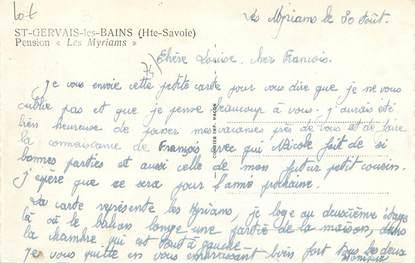 Lot
Les Myriams le 30 Août.
ST-GERVAIS-les-BAINS (Hte-Savoie)
Pension « Les Myriams »
Chère Louise, cher François.
Je vous envoie cette petite carte pour vous dire que je ne vous
oublie pas et que je pense beaucoup à vous. J'aurais été
très heureuse de passer mes vacances près de vous et de faire
la connaissance de François avec qui Nicole fait de si
bonnes parties et aussi celle de mon futur petit cousin.
J'espère que ce sera pour l'année prochaine.
La carte représente les Myriams, je loge au deuxième étage
là où le balcon longe une partie de la maison, dans
la chambre qui est tout à gauche.
Je vous quitte en vous embrassant bien fort tous les deux
Monique